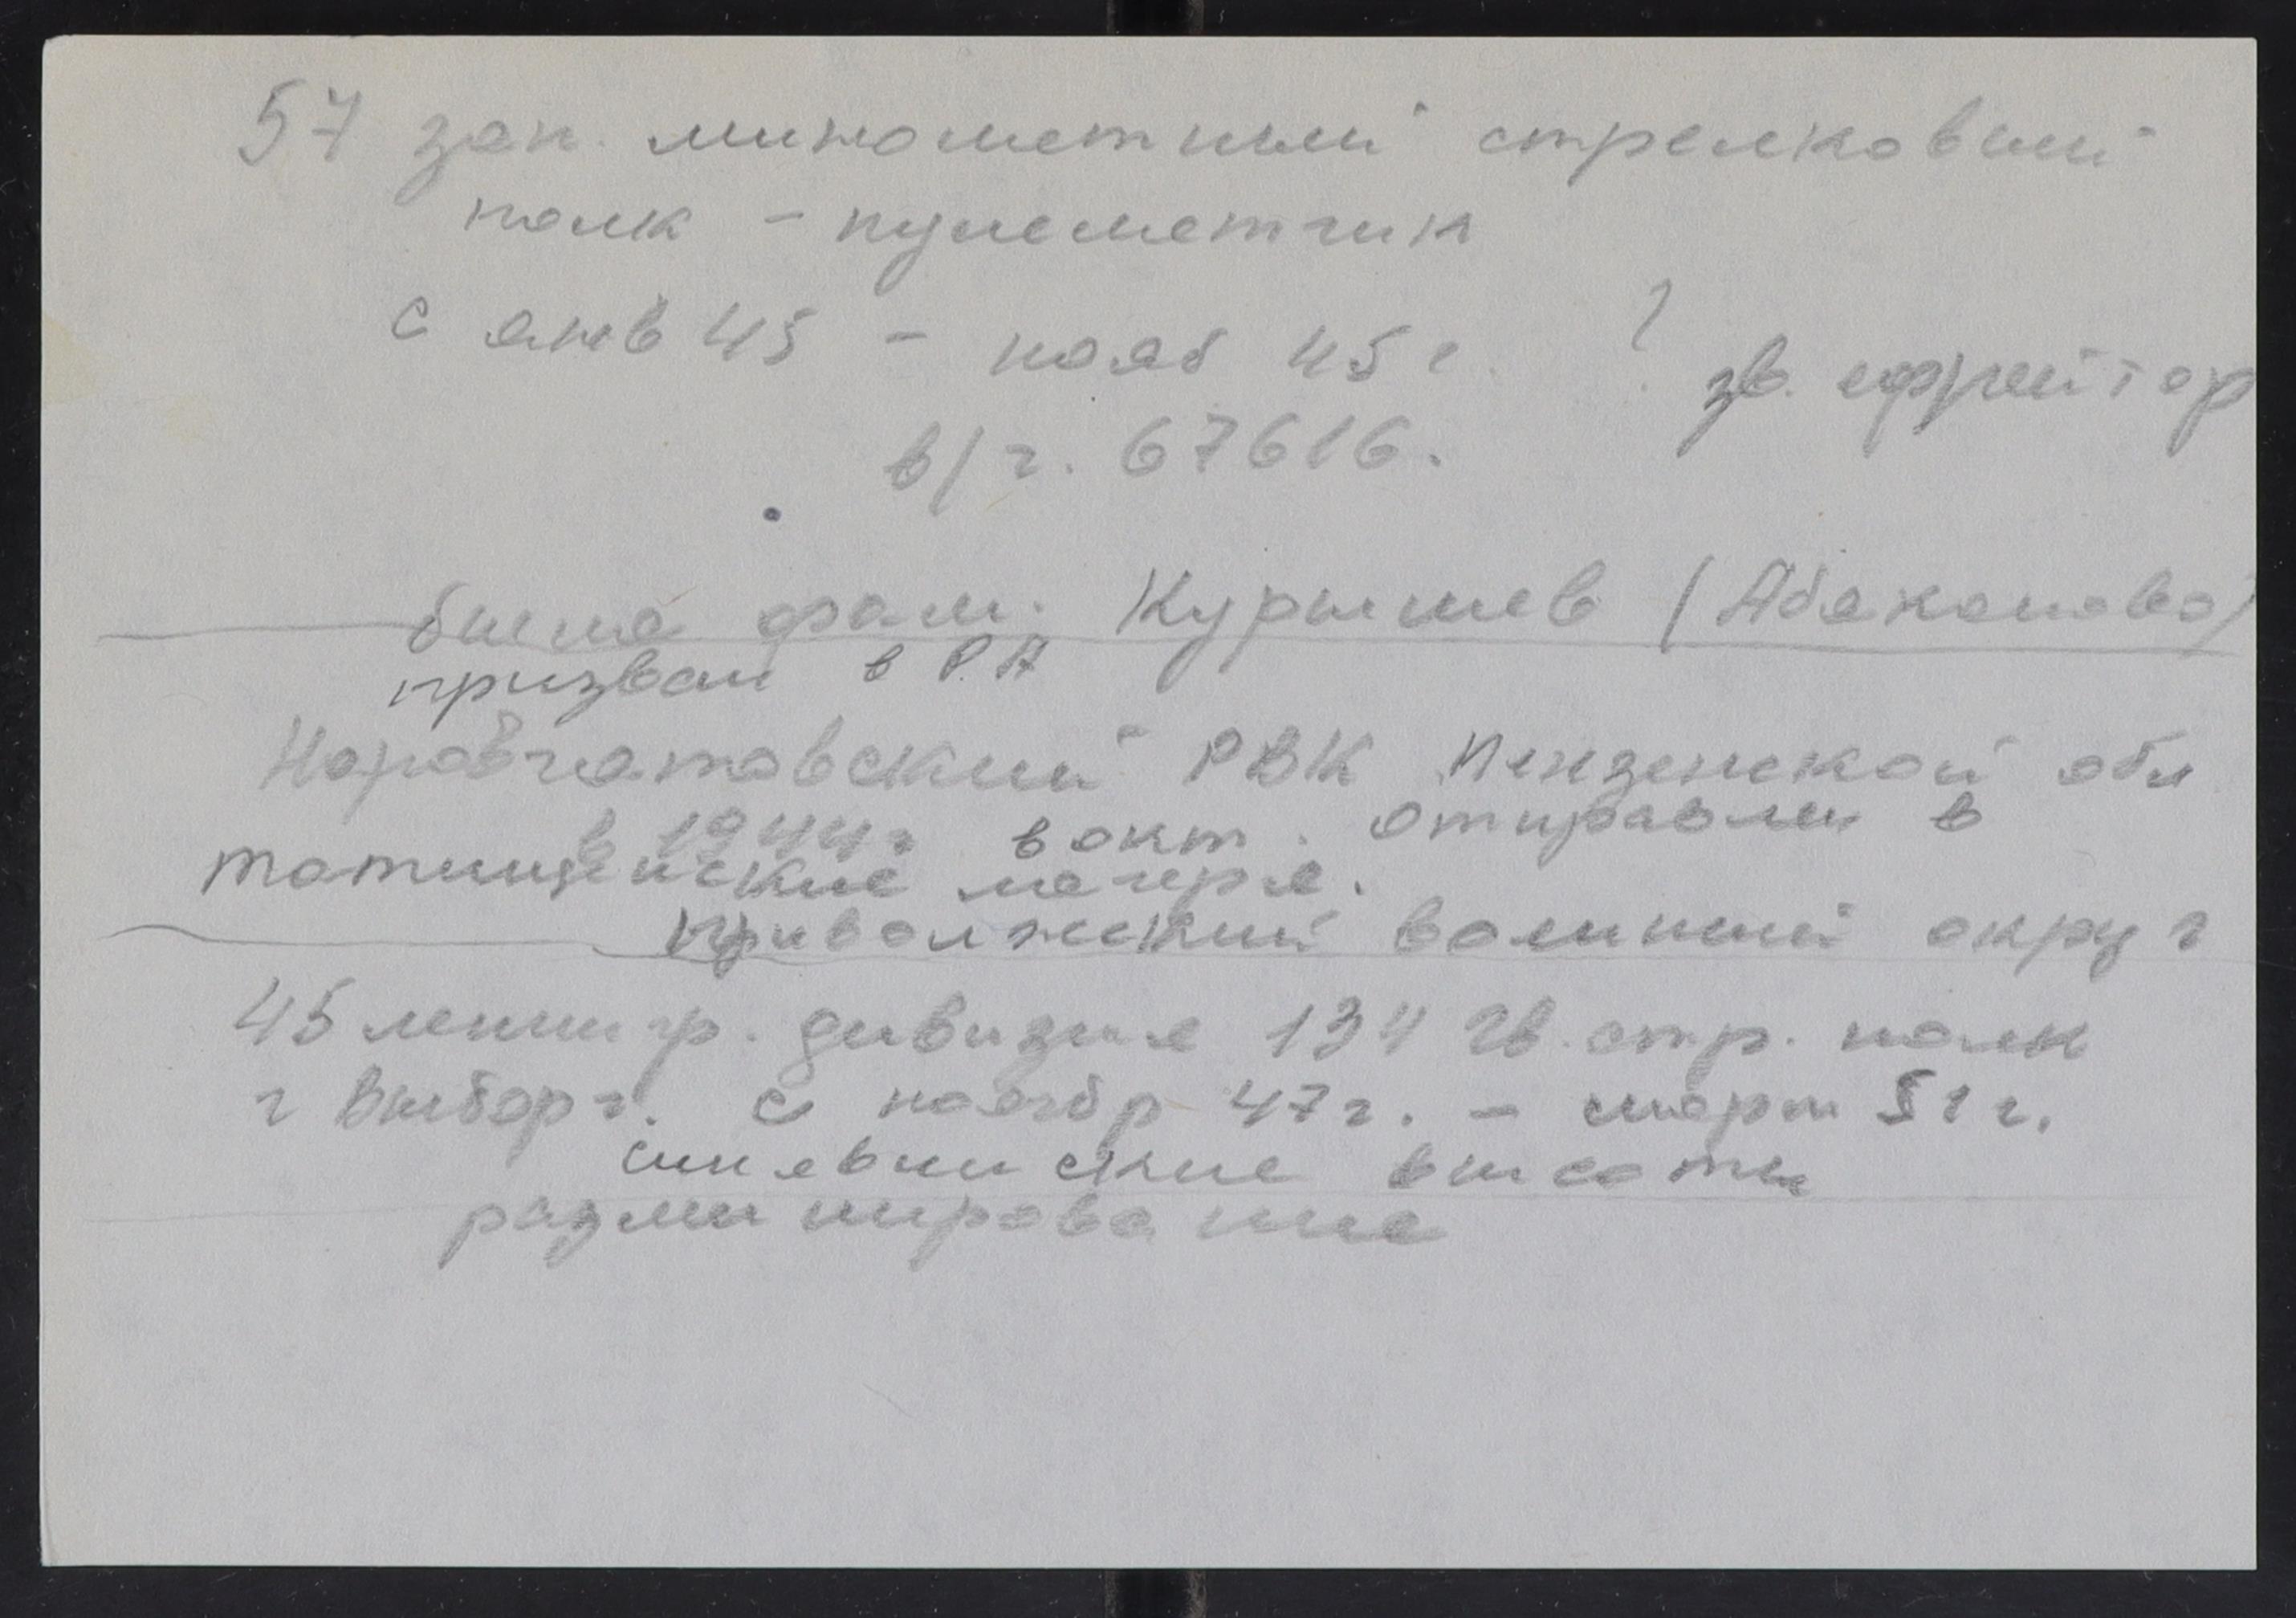 57 зап. минометный стрелковый
полк - пулеметчик
с янв 45 - нояб 45 г. ? зв. ефрейтор
в/ч. 67616.
была фам. Курышев (Абаконово)
призван в Р.А
Наровчатовский РВК Пензенской обл
в 1944 г в окт. отправлен в
татищенские лагеря.
приволжский военный округ
45 ленингр. дивизия 134 гв. стр. полк
г Выборг. с ноябр 47 г. - март 51 г.
синявинские высоты
разминирование